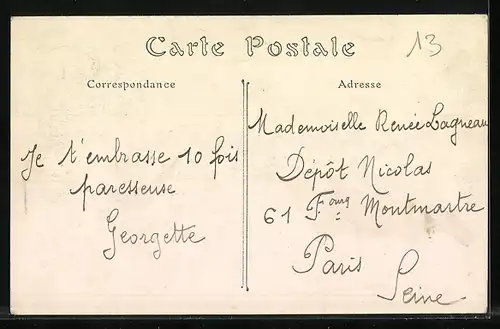 Carte Postale
13
Correspondance
Adresse
Je t'embrasse 10 fois
paresseuse
Georgette
Mademoiselle Renée Lagneau
Dépôt Nicolas
61 F.ourg Montmartre
Paris
Seine